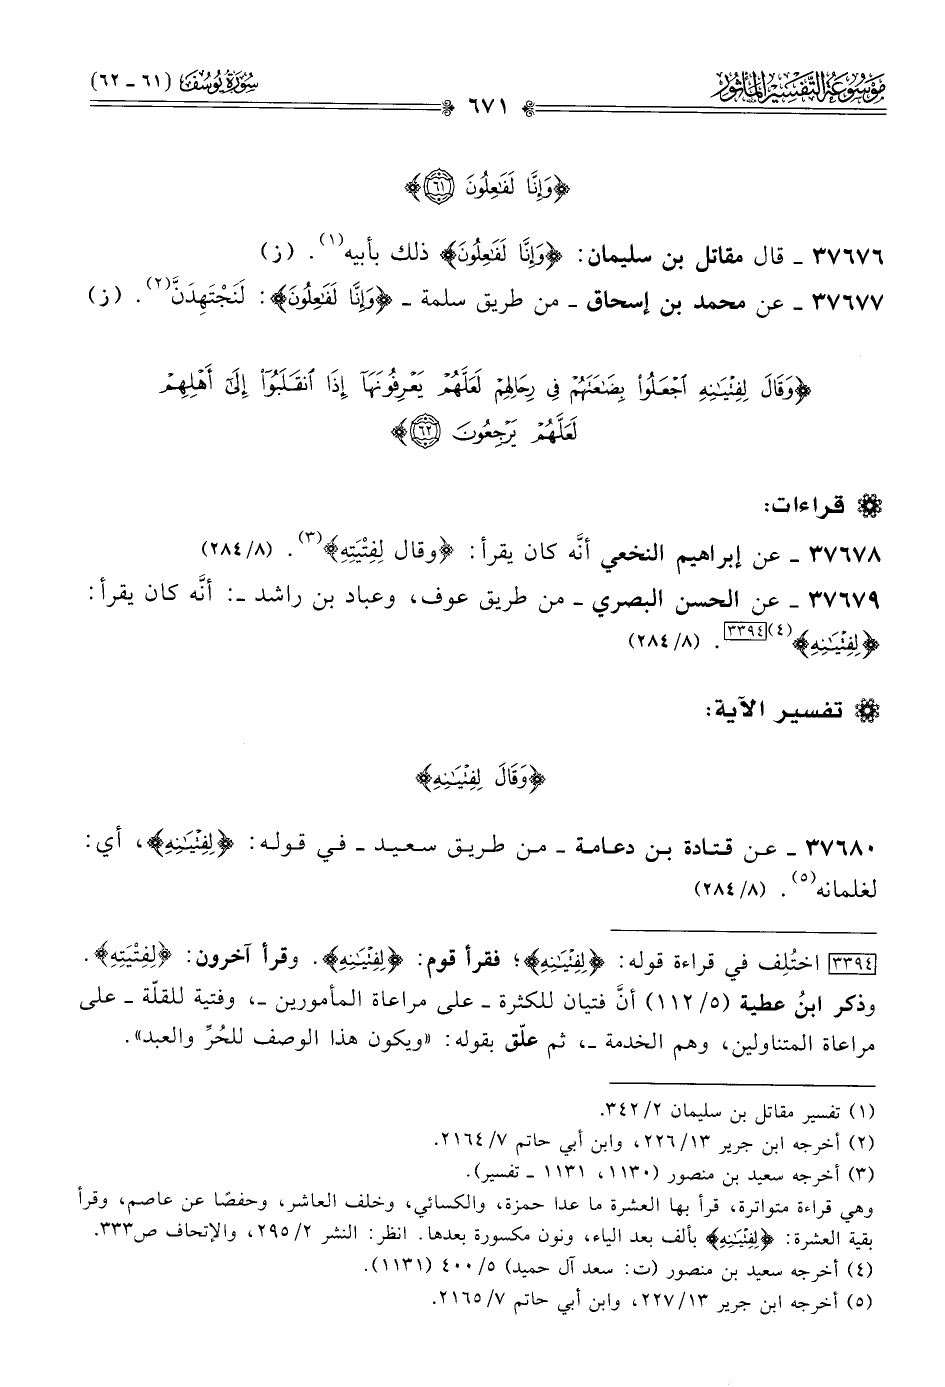 مَوْسُوعَةُ التَّفْسِيرِ المَأْثُورِ
٦٧١
سُورَةُ يُوسُفَ (٦١ - ٦٢)
﴿وَإِنَّا لَفَٰعِلُونَ ۝٦١﴾
٣٧٦٧٦ - قال مقاتل بن سليمان: ﴿وَإِنَّا لَفَٰعِلُونَ﴾ ذلك بأبيه(١). (ز)
٣٧٦٧٧ - عن محمد بن إسحاق - من طريق سلمة - ﴿وَإِنَّا لَفَٰعِلُونَ﴾: لَنَجْتَهِدَنَّ(٢). (ز)
﴿وَقَالَ لِفِتْيَٰنِهِ ٱجْعَلُوا۟ بِضَٰعَتَهُمْ فِى رِحَالِهِمْ لَعَلَّهُمْ يَعْرِفُونَهَآ إِذَا ٱنقَلَبُوٓا۟ إِلَىٰٓ أَهْلِهِمْ
لَعَلَّهُمْ يَرْجِعُونَ ۝٦٢﴾
قراءات:
٣٧٦٧٨ - عن إبراهيم النخعي أنَّه كان يقرأ: ﴿وقال لِفِتْيَتِهِ﴾(٣). (٨/ ٢٨٤)
٣٧٦٧٩ - عن الحسن البصري - من طريق عوف، وعباد بن راشد -: أنَّه كان يقرأ:
﴿لِفِتْيَٰنِهِ﴾(٤)[٣٣٩٤]. (٨/ ٢٨٤)
تفسير الآية:
﴿وَقَالَ لِفِتْيَٰنِهِ﴾
٣٧٦٨٠ - عن قتادة بن دعامة - من طريق سعيد - في قوله: ﴿لِفِتْيَٰنِهِ﴾، أي:
لغلمانه(٥). (٨/ ٢٨٤)
[٣٣٩٤] اختُلِف في قراءة قوله: ﴿لِفِتْيَٰنِهِ﴾؛ فقرأ قوم: ﴿لِفِتْيَٰنِهِ﴾. وقرأ آخرون: ﴿لِفِتْيَتِهِ﴾.
وذكر ابنُ عطية (٥/ ١١٢) أنَّ فتيان للكثرة - على مراعاة المأمورين -، وفتية للقلّة - على
مراعاة المتناولين، وهم الخدمة -، ثم علّق بقوله: «ويكون هذا الوصف للحُرِّ والعبد».
(١) تفسير مقاتل بن سليمان ٢/ ٣٤٢.
(٢) أخرجه ابن جرير ١٣/ ٢٢٦، وابن أبي حاتم ٧/ ٢١٦٤.
(٣) أخرجه سعيد بن منصور (١١٣٠، ١١٣١ - تفسير).
وهي قراءة متواترة، قرأ بها العشرة ما عدا حمزة، والكسائي، وخلف العاشر، وحفصًا عن عاصم، وقرأ
بقية العشرة: ﴿لِفِتْيَٰنِهِ﴾ بألف بعد الياء، ونون مكسورة بعدها. انظر: النشر ٢/ ٢٩٥، والإتحاف ص٣٣٣.
(٤) أخرجه سعيد بن منصور (ت: سعد آل حميد) ٥/ ٤٠٠ (١١٣١).
(٥) أخرجه ابن جرير ١٣/ ٢٢٧، وابن أبي حاتم ٧/ ٢١٦٥.